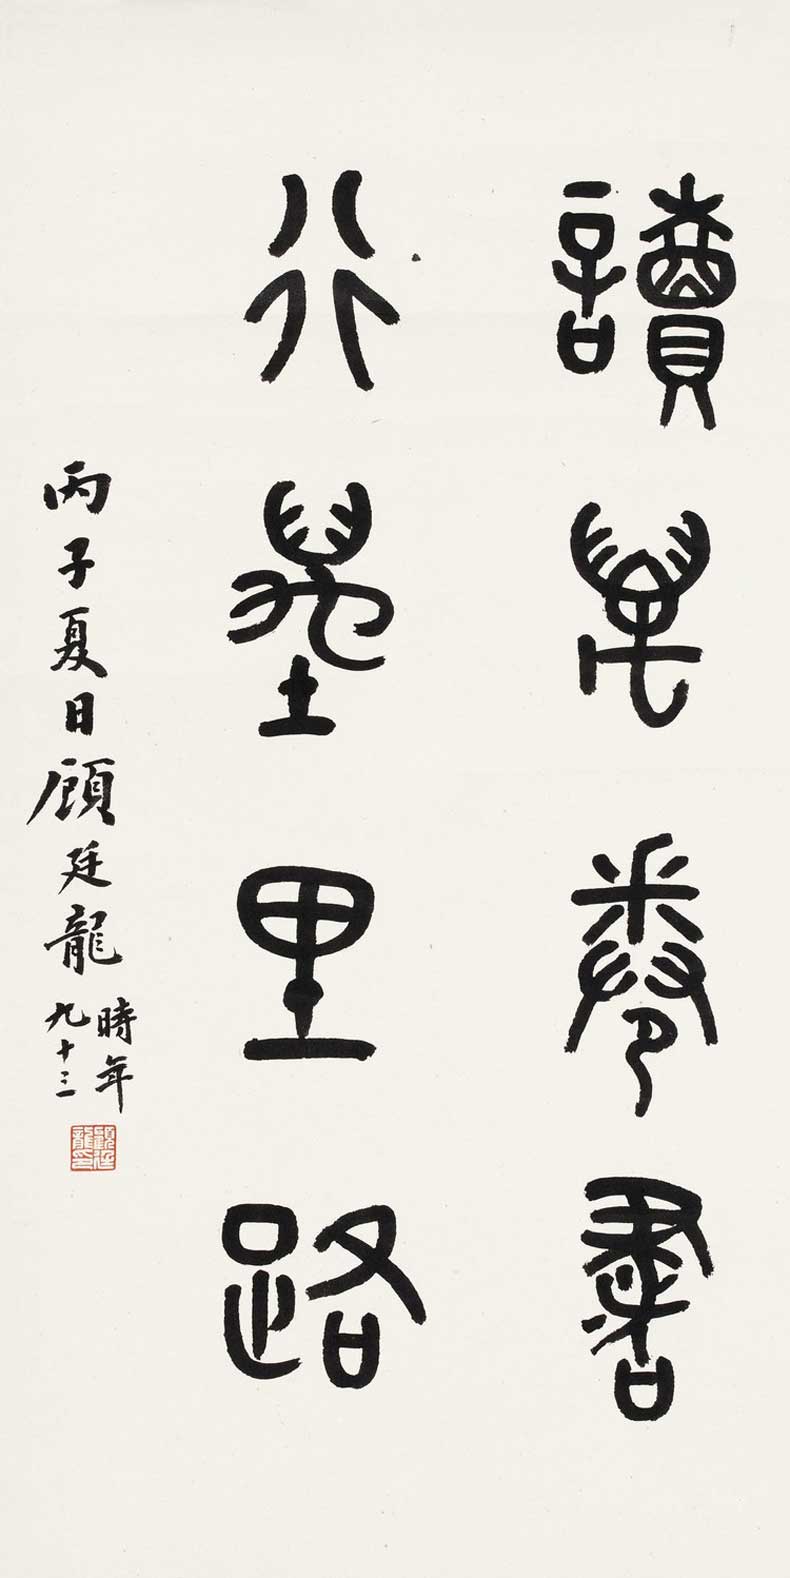 讀萬卷書
行萬里路
丙子夏日顧廷龍時年九十三
顧廷龍印